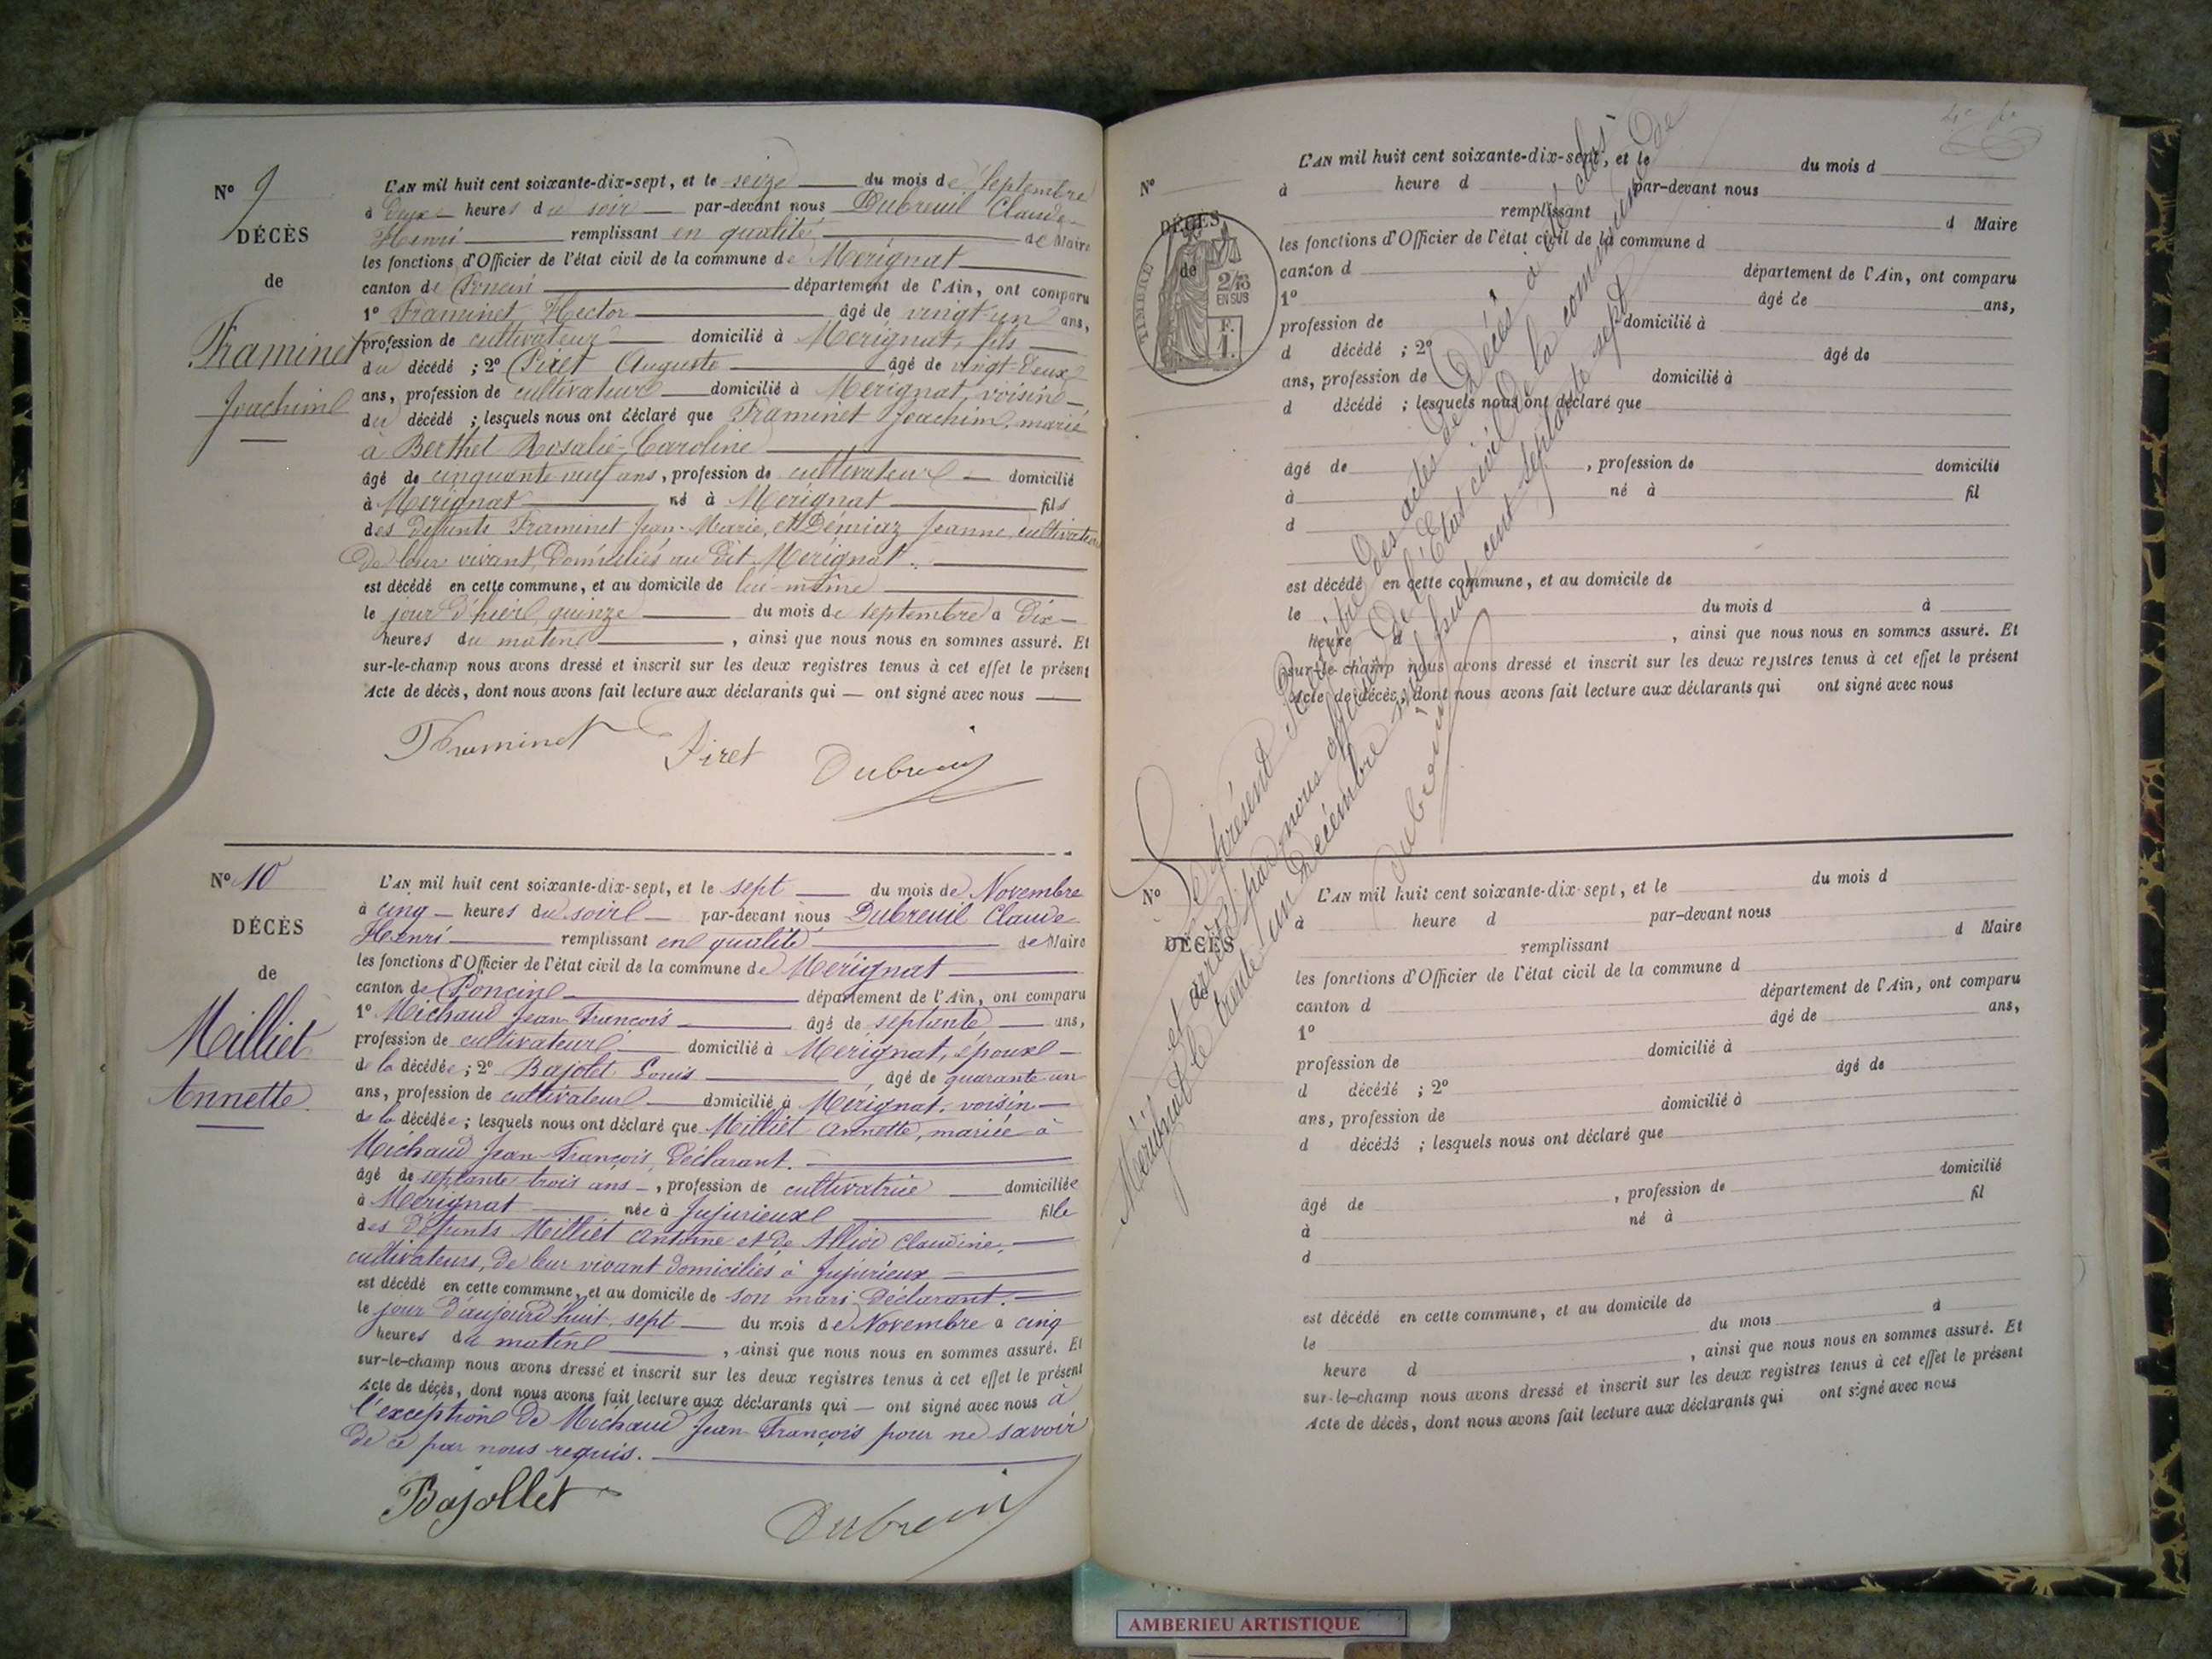 N° 9
DÉCÈS
de
Framinet
Joachim
L'AN mil huit cent soixante-dix-sept, et le seize du mois de Septembre
à deux heures du soir par-devant nous Dubreuil Claude
Henri remplissant en qualité de Maire
les fonctions d'Officier de l'état civil de la commune de Mérignat
canton de Poncin département de l'Ain, ont comparu
1° Framinet Hector âgé de vingt un ans,
profession de cultivateur domicilié à Mérignat, fils
du décédé ; 2° Piret Auguste âgé de vingt-deux
ans, profession de cultivateur domicilié à Mérignat, voisin
du décédé ; lesquels nous ont déclaré que Framinet Joachim, marié
à Berthet Rosalie-Caroline
âgé de cinquante neuf ans, profession de cultivateur domicilié
à Mérignat né à Mérignat fils
des défunts Framinet Jean-Marie, et Démiaz Jeanne, cultivateurs
de leur vivant, domiciliés au dit Mérignat.
est décédé en cette commune, et au domicile de lui-même
le jour d'hier, quinze du mois de septembre à dix
heures du matin, ainsi que nous nous en sommes assuré. Et
sur-le-champ nous avons dressé et inscrit sur les deux registres tenus à cet effet le présent
Acte de décès, dont nous avons fait lecture aux déclarants qui — ont signé avec nous
Framinet Piret Dubreuil
N° 10
DÉCÈS
de
Milliet
Annette
L'AN mil huit cent soixante-dix-sept, et le sept du mois de Novembre
à cinq heures du soir par-devant nous Dubreuil Claude
Henri remplissant en qualité de Maire
les fonctions d'Officier de l'état civil de la commune de Mérignat
canton de Poncin département de l'Ain, ont comparu
1° Michaud Jean-François âgé de septante ans,
profession de cultivateur domicilié à Mérignat, époux
de la décédée ; 2° Bajolet Louis, âgé de quarante un
ans, profession de cultivateur domicilié à Mérignat, voisin
de la décédée ; lesquels nous ont déclaré que Milliet Annette, mariée à
Michaud Jean-François, déclarant.
âgé de septante trois ans, profession de cultivatrice domiciliée
à Mérignat née à Jujurieux fille
des défunts Milliet Antoine et de Alliod Claudine,
cultivateurs, de leur vivant domiciliés à Jujurieux
est décédé en cette commune, et au domicile de son mari déclarant.
le jour d'aujourd'huit, sept du mois de Novembre à cinq
heures du matin, ainsi que nous nous en sommes assuré. Et
sur-le-champ nous avons dressé et inscrit sur les deux registres tenus à cet effet le présent
Acte de décès, dont nous avons fait lecture aux déclarants qui — ont signé avec nous à
l'exception de Michaud Jean-François pour ne savoir
de ce par nous requis.
Bajollet Dubreuil
N°
DÉCÈS
de
TIMBRE
2/10
EN SUS
F.
1.
L'AN mil huit cent soixante-dix-sept, et le du mois d
à heure d par-devant nous
remplissant d Maire
les fonctions d'Officier de l'état civil de la commune d
canton d département de l'Ain, ont comparu
1° âgé de ans,
profession de domicilié à
d décédé ; 2° âgé de
ans, profession de domicilié à
d décédé ; lesquels nous ont déclaré que
âgé de , profession de domicilié
à né à fil
d
est décédé en cette commune, et au domicile de
le du mois d à
heure d , ainsi que nous nous en sommes assuré. Et
sur-le-champ nous avons dressé et inscrit sur les deux registres tenus à cet effet le présent
Acte de décès, dont nous avons fait lecture aux déclarants qui ont signé avec nous
Le présent Registre des actes de Décès a été clos
et arrêté par nous officier de l'État civil de la commune de
Mérignat le trente un Décembre mil huit cent septante sept
Dubreuil
N°
DÉCÈS
de
L'AN mil huit cent soixante-dix-sept, et le du mois d
à heure d par-devant nous
remplissant d Maire
les fonctions d'Officier de l'état civil de la commune d
canton d département de l'Ain, ont comparu
1° âgé de ans,
profession de domicilié à
d décédé ; 2° âgé de
ans, profession de domicilié à
d décédé ; lesquels nous ont déclaré que
âgé de , profession de domicilié
à né à fil
d
est décédé en cette commune, et au domicile de
le du mois d
heure d , ainsi que nous nous en sommes assuré. Et
sur-le-champ nous avons dressé et inscrit sur les deux registres tenus à cet effet le présent
Acte de décès, dont nous avons fait lecture aux déclarants qui ont signé avec nous
AMBERIEU ARTISTIQUE